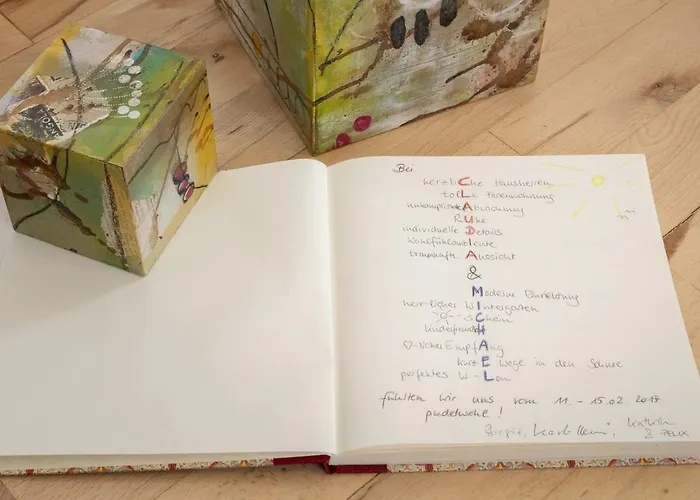 Bei
herzliChe Hausherren
toLLe Ferienwohnung
unkomplizierte Abwicklung
RUhe
individuelle Details
WohlfühlambIente
traumhafte Aussicht
&
Moderne Einrichtung
herrlicher WIntergarten
-sChein
♡-licher EmpfAng
kurzE Wege in den Schnee
perfektes W-Lan
fühlten wir uns vom 11. - 15.02.2017
pudelwohl!
Birgit, Kathrin
& FELIX